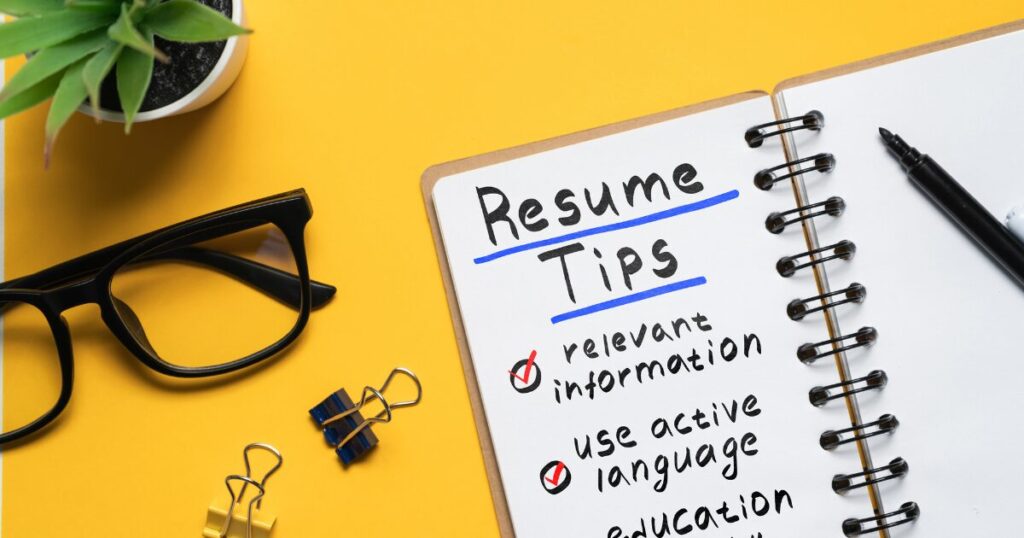 Resume
Tips
relevant
information
use active
language
education